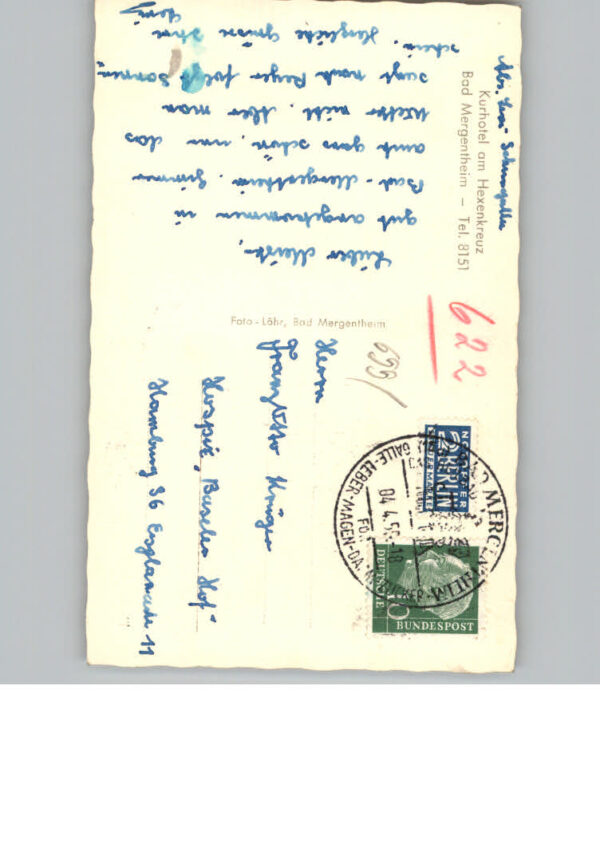 Abs.
Kurhotel am Hexenkreuz
Bad Mergentheim – Tel. 8151
Lieber
gut angekommen in
Bad-Mergentheim. Zimmer
auch ganz schön, nur das
Wetter nicht. Aber man
sagt nach Regen folgt Sonnen-
schein. Herzliche Grüsse Ihre
Foto-Löhr, Bad Mergentheim
622
699/
Herrn
Franz Otto Krüger
Hospiz „Baseler Hof"
Hamburg 36 Esplanade 11
NOTOPFER
2 BERLIN
STEUERMARKE
BAD MERGENTHEIM
04.4.56-18
GALLE-LEBER-MAGEN-DA
DEUTSCHE
BUNDESPOST
10